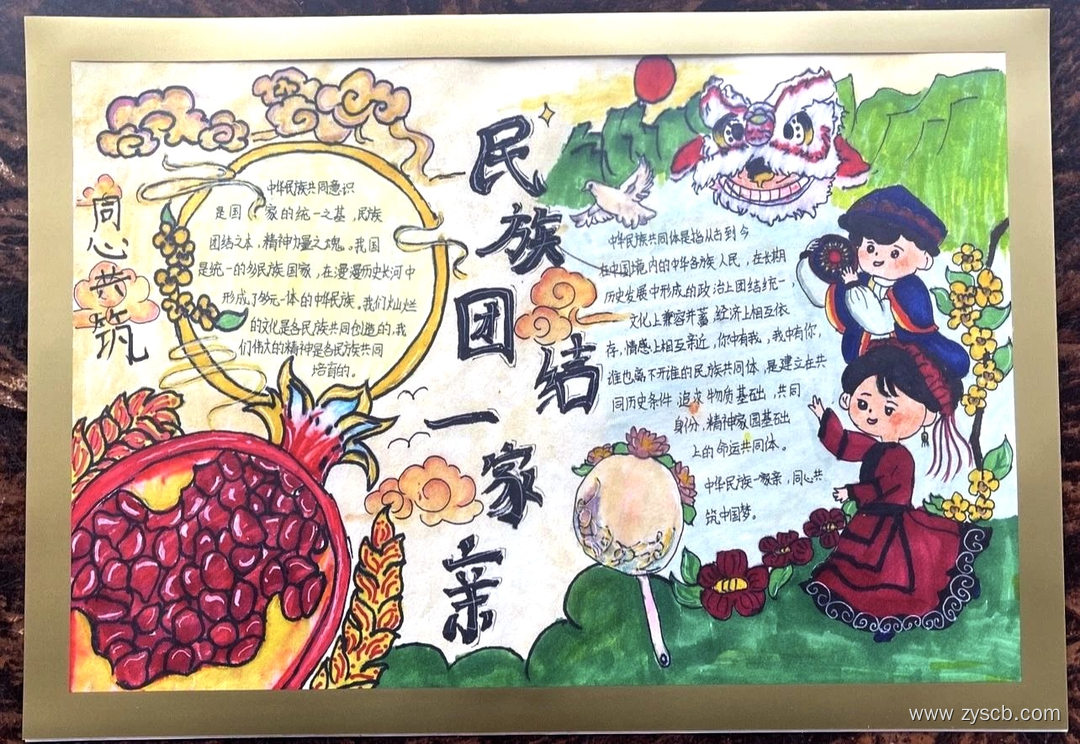 同心共筑
中华民族共同意识
是国家的统一之基，民族
团结之本，精神力量之魂。我国
是统一的多民族国家，在漫漫历史长河中
形成了多元一体的中华民族。我们灿烂
的文化是各民族共同创造的，我
们伟大的精神是各民族共同
培育的。
民族团结一家亲
中华民族共同体是指从古到今
在中国境内的中华各族人民，在长期
历史发展中形成的政治上团结统一，
文化上兼容并蓄，经济上相互依
存，情感上相互亲近，你中有我，我中有你，
谁也离不开谁的民族共同体，是建立在共
同历史条件 追求 物质基础，共同
身份，精神家园基础
上的命运共同体。
中华民族一家亲，同心共
筑中国梦。
www zyscb.com